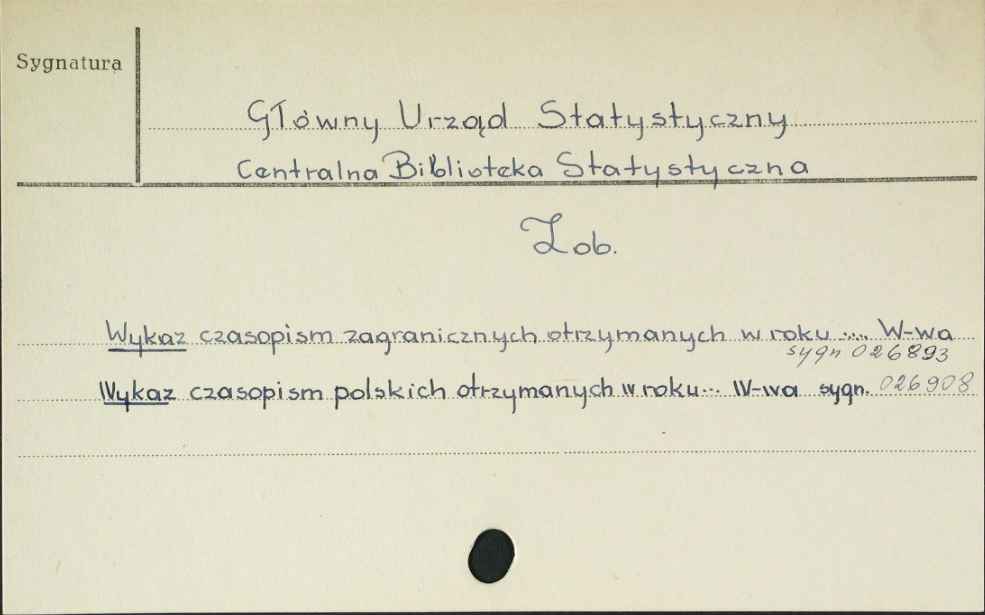 Sygnatura
Główny Urząd Statystyczny
Centralna Biblioteka Statystyczna
Zob.
Wykaz czasopism zagranicznych otrzymanych w roku .... W-wa
sygn 026893
Wykaz czasopism polskich otrzymanych w roku... W-wa sygn. 026908